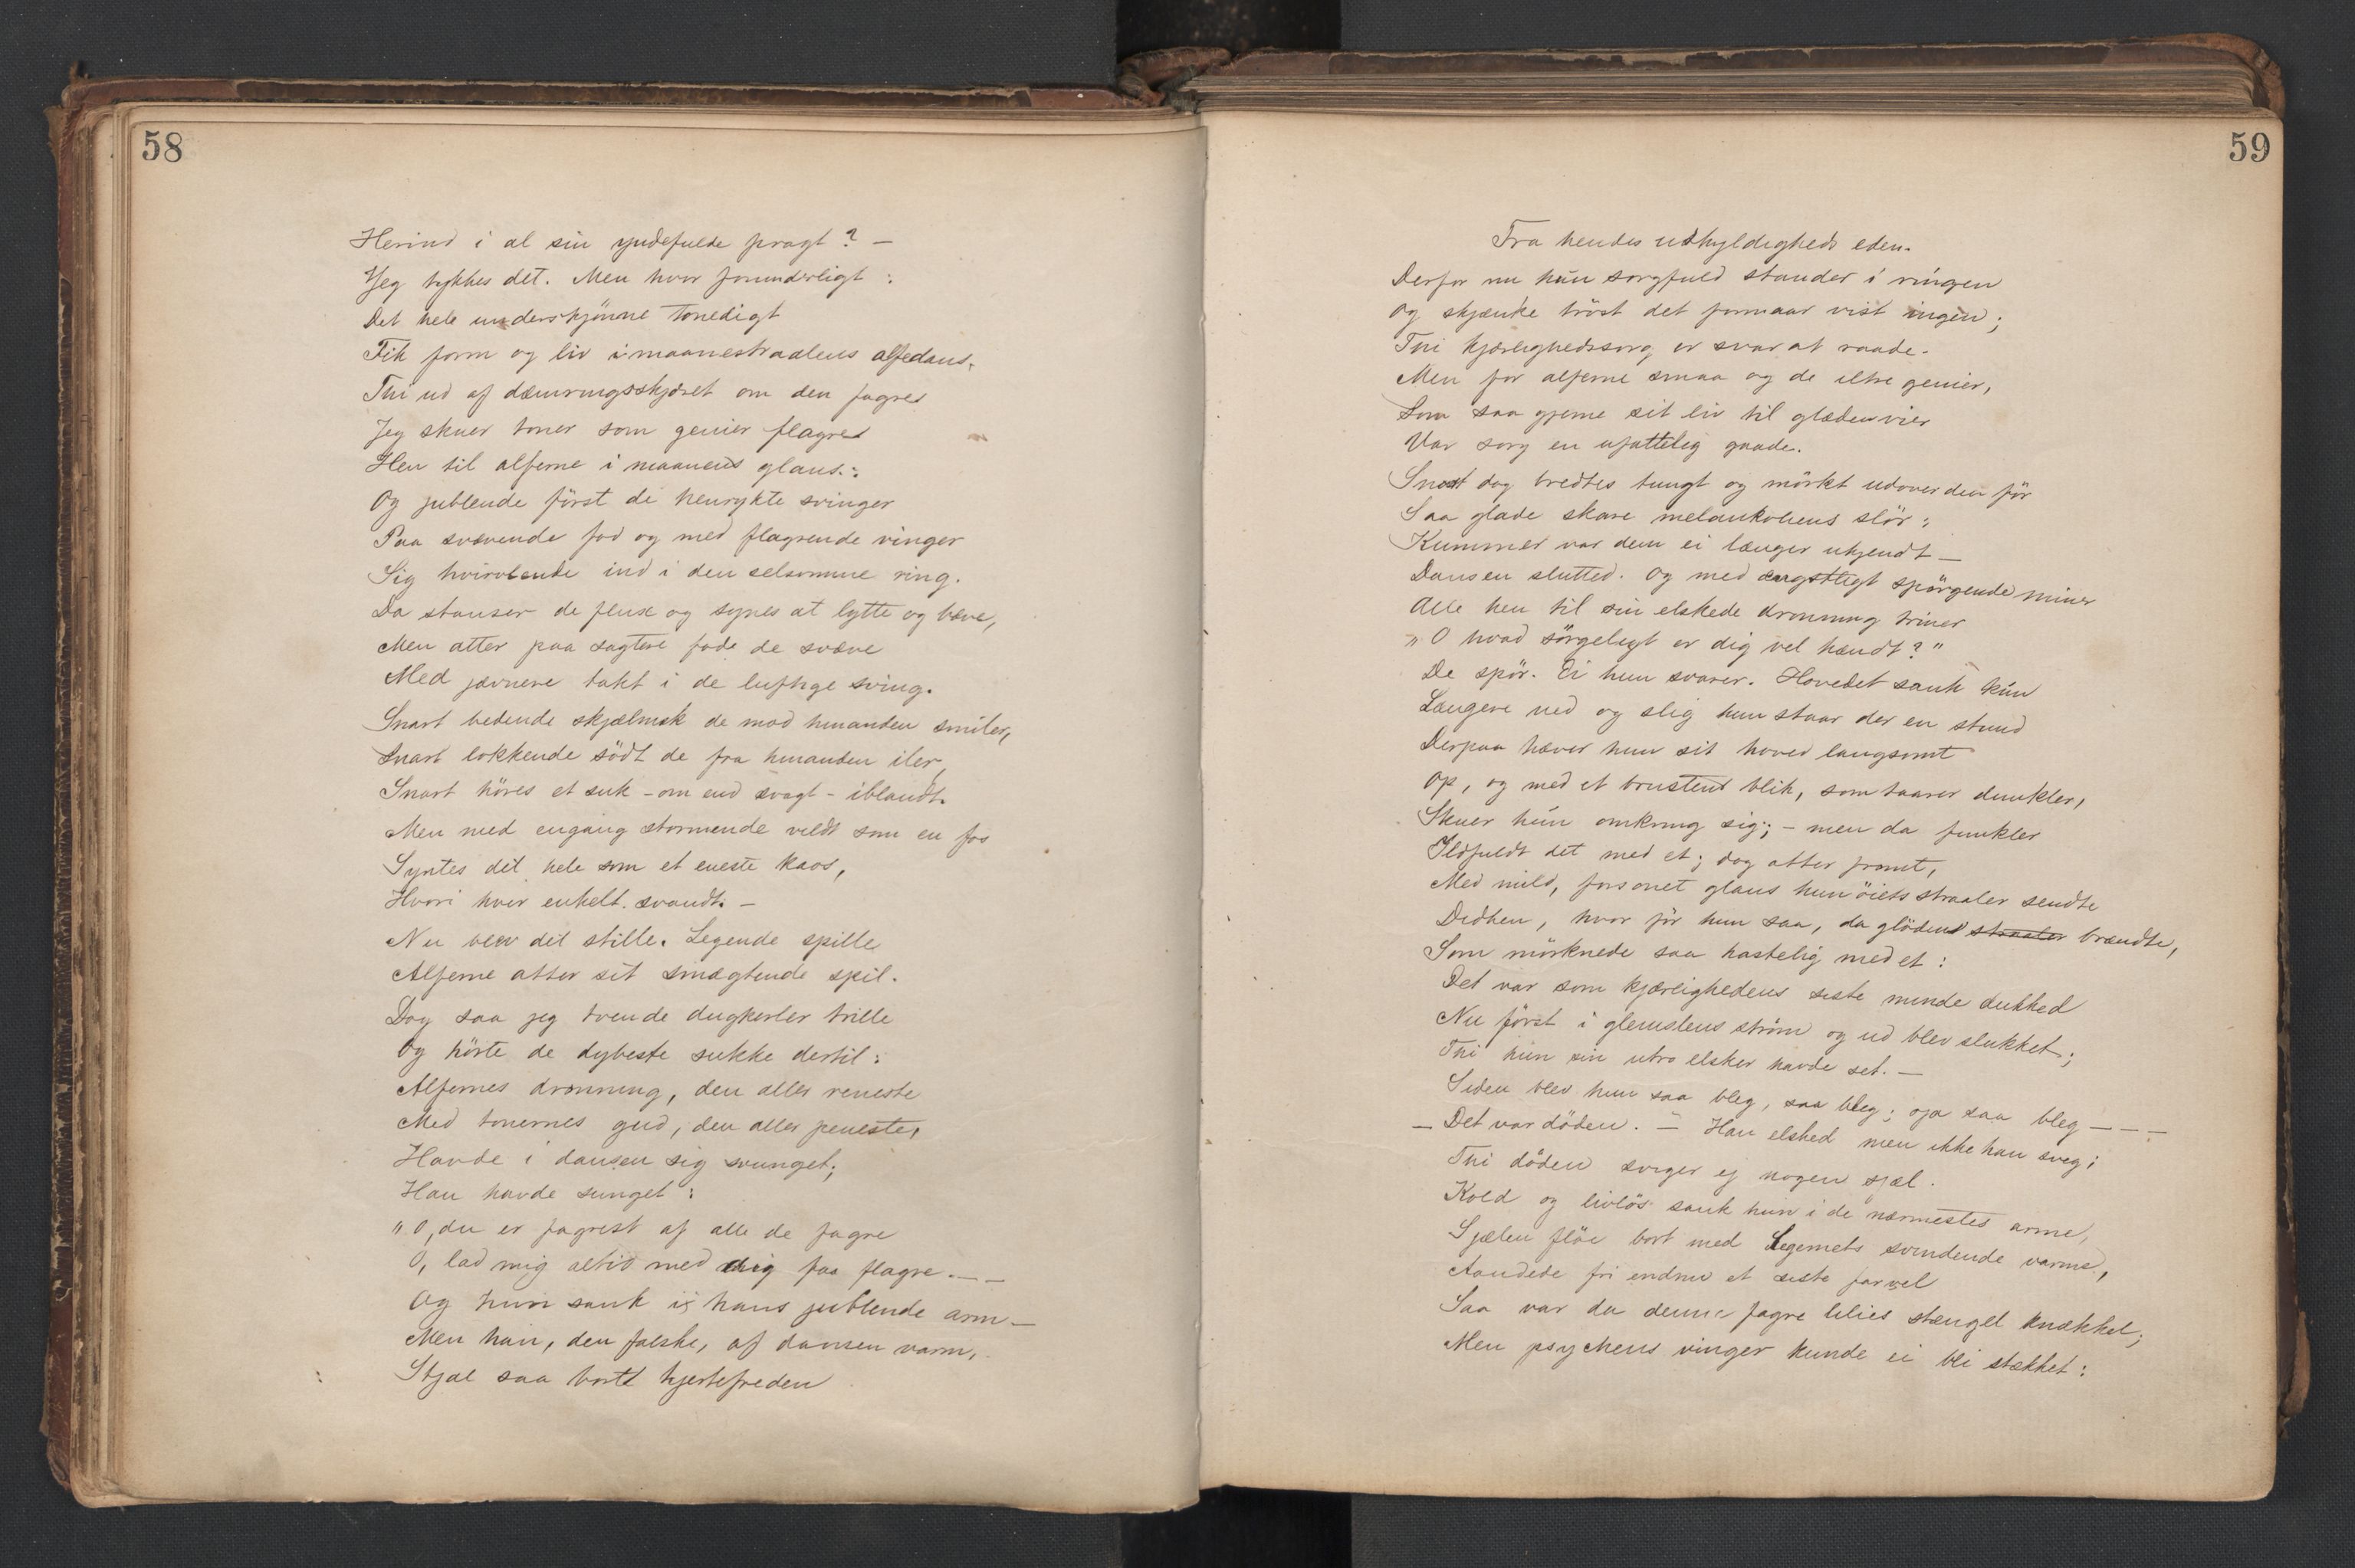 58
Herind i al sin yndefulde pragt? —
Jeg tykkes det. Men hvor forunderligt:
Det hele underskjönne Tonedigt
Fik form og liv i maanestraalens alfedans.
Thi ud af dæmringsskjæret om den fagres
Jeg skuer toner som genier flagres
Hen til alferne i maanens glans.:
Og jublende först de henrykte svinger
Paa svævende fod og med flagrende vinger
Sig hvirvlende ind i den selsomme ring.
Da stanser de flux og synes at lytte og bæve,
Men atter paa sagtere fode de svæve
Med jævnere takt i de luftige sving.
Snart bedende skjælmsk de mod hinanden smiler,
Snart lokkende södt de fra hinanden iler,
Snart höres et suk - om end svagt - iblandt.
Men med engang stormende vildt som en fos
Syntes det hele som et eneste kaos,
Hvori hver enkelt svandt. —
Nu blev det stille. Legende spille
Alferne atter sit smægtende spil.
Dog saa jeg tvende dugperler trille
Og hörte de dybeste sukke dertil:
Alfernes dronning, den aller reneste
Med tonernes gud, den aller peneste,
Havde i dansen sig svunget;
Han havde sunget:
"O, du er fagrest af alle de fagre
O, lad mig altid med dig faa flagre. — —
Og hun sank i hans jublende arm —
Men han, den falske, af dansen varm,
Stjal saa bort hjertefreden
59
Fra hendes uskyldigheds eden.
Derfor nu hun sorgfuld stander i ringen
Og skjænke tröst det formaar vist ingen;
Thi kjærlighedssorg er svar at raade.
Men for alferne smaa og de iltre genier,
Som saa gjerne sit liv til glæden vier
Var sorg en ufattelig gaade.
Snart dog bredtes tungt og mörkt udover den för
Saa glade skare melankoliens slör:
Kummer var dem ei længer ukjendt —
Dansen slutted. Og med ængstligt spörgende miner
Alle hen til sin elskede dronning triner
"O hvad sörgeligt er dig vel hændt?"
De spör. Ei hun svarer. Hovedet sank kun
Længere ned og slig hun staar der en stund
Derpaa hæver hun sit hoved langsomt
Op, og med et brustent blik, som taarer dunkler,
Skuer hun omkring sig; - men da funkler
Ildfuldt det med et; dog atter fromt,
Med mild, forsonet glans hun öiets straaler sendte
Didhen, hvor för hun saa, da glödens straaler brændte,
Som mörknede saa hastelig med et:
Det var som kjærlighedens siste minde dukked
Nu först i glemslens ström og ud blev slukket;
Thi hun sin utro elsker havde set. —
Siden blev hun saa bleg, saa bleg; oja saa bleg — — —
— Det var döden. — Han elsked men ikke han sveg;
Thi döden sviger ej nogen sjæl.
Kold og livlös sank hun i de nærmestes arme,
Sjælen flöi bort med Legemets svindende varme,
Aandede fri endnu et siste farvel
Saa var da denne fagre lilies stængel knækket;
Men psychens vinger kunde ei bli stækket: